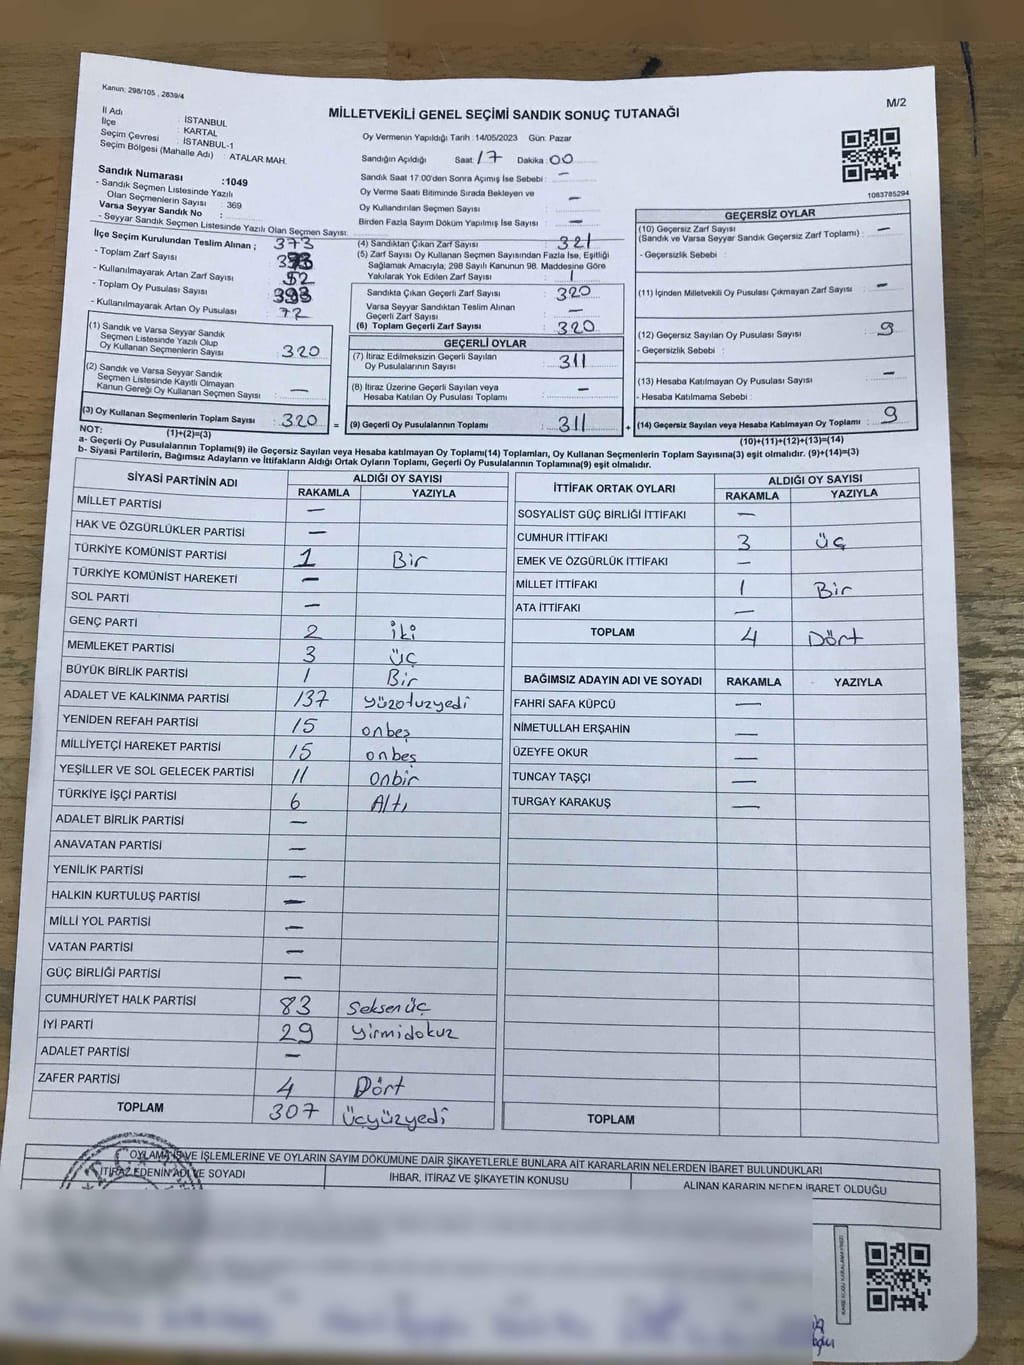 Kanun: 298/105 , 2839/4
M/2
MİLLETVEKİLİ GENEL SEÇİMİ SANDIK SONUÇ TUTANAĞI
İl Adı : İSTANBUL
İlçe : KARTAL
Seçim Çevresi : İSTANBUL-1
Seçim Bölgesi (Mahalle Adı) : ATALAR MAH.
Sandık Numarası :1049
- Sandık Seçmen Listesinde Yazılı
Olan Seçmenlerin Sayısı : 369
Varsa Seyyar Sandık No :
- Seyyar Sandık Seçmen Listesinde Yazılı Olan Seçmen Sayısı:
İlçe Seçim Kurulundan Teslim Alınan ; 373
- Toplam Zarf Sayısı
- Kullanılmayarak Artan Zarf Sayısı : 52
- Toplam Oy Pusulası Sayısı
- Kullanılmayarak Artan Oy Pusulası : 72
(1) Sandık ve Varsa Seyyar Sandık
Seçmen Listesinde Yazılı Olup
Oy Kullanan Seçmenlerin Sayısı : 320
(2) Sandık ve Varsa Seyyar Sandık
Seçmen Listesinde Kayıtlı Olmayan
Kanun Gereği Oy Kullanan Seçmen Sayısı : —
(3) Oy Kullanan Seçmenlerin Toplam Sayısı : 320
(1)+(2)=(3)
Oy Vermenin Yapıldığı Tarih : 14/05/2023 Gün: Pazar
Sandığın Açıldığı Saat: 17 Dakika: 00
Sandık Saat 17:00'den Sonra Açımış İse Sebebi : —
Oy Verme Saati Bitiminde Sırada Bekleyen ve
Oy Kullandırılan Seçmen Sayısı : —
Birden Fazla Sayım Döküm Yapılmış İse Sayısı : —
(4) Sandıktan Çıkan Zarf Sayısı : 321
(5) Zarf Sayısı Oy Kullanan Seçmen Sayısından Fazla İse, Eşitliği
Sağlamak Amacıyla, 298 Sayılı Kanunun 98. Maddesine Göre
Yakılarak Yok Edilen Zarf Sayısı : 1
Sandıkta Çıkan Geçerli Zarf Sayısı : 320
Varsa Seyyar Sandıktan Teslim Alınan
Geçerli Zarf Sayısı : —
(6) Toplam Geçerli Zarf Sayısı : 320
GEÇERLİ OYLAR
(7) İtiraz Edilmeksizin Geçerli Sayılan
Oy Pusulalarının Sayısı : 311
(8) İtiraz Üzerine Geçerli Sayılan veya
Hesaba Katılan Oy Pusulası Toplamı : —
= (9) Geçerli Oy Pusulalarının Toplamı : 311
1083785294
GEÇERSİZ OYLAR
(10) Geçersiz Zarf Sayısı
(Sandık ve Varsa Seyyar Sandık Geçersiz Zarf Toplamı) : —
- Geçersizlik Sebebi :
(11) İçinden Milletvekili Oy Pusulası Çıkmayan Zarf Sayısı : —
(12) Geçersiz Sayılan Oy Pusulası Sayısı : 9
- Geçersizlik Sebebi :
(13) Hesaba Katılmayan Oy Pusulası Sayısı : —
- Hesaba Katılmama Sebebi :
+ (14) Geçersiz Sayılan veya Hesaba Katılmayan Oy Toplamı : 9
(10)+(11)+(12)+(13)=(14)
NOT:
a- Geçerli Oy Pusulalarının Toplamı(9) ile Geçersiz Sayılan veya Hesaba katılmayan Oy Toplamı(14) Toplamları, Oy Kullanan Seçmenlerin Toplam Sayısına(3) eşit olmalıdır. (9)+(14)=(3)
b- Siyasi Partilerin, Bağımsız Adayların ve İttifakların Aldığı Ortak Oyların Toplamı, Geçerli Oy Pusulalarının Toplamına(9) eşit olmalıdır.
SİYASİ PARTİNİN ADI ALDIĞI OY SAYISI
RAKAMLA YAZIYLA
MİLLET PARTİSİ —
HAK VE ÖZGÜRLÜKLER PARTİSİ —
TÜRKİYE KOMÜNİST PARTİSİ 1 Bir
TÜRKİYE KOMÜNİST HAREKETİ —
SOL PARTİ —
GENÇ PARTİ 2 İki
MEMLEKET PARTİSİ 3 Üç
BÜYÜK BİRLİK PARTİSİ 1 Bir
ADALET VE KALKINMA PARTİSİ 137 yüzotuzyedi
YENİDEN REFAH PARTİSİ 15 onbeş
MİLLİYETÇİ HAREKET PARTİSİ 15 onbeş
YEŞİLLER VE SOL GELECEK PARTİSİ 11 Onbir
TÜRKİYE İŞÇİ PARTİSİ 6 Altı
ADALET BİRLİK PARTİSİ —
ANAVATAN PARTİSİ —
YENİLİK PARTİSİ —
HALKIN KURTULUŞ PARTİSİ —
MİLLİ YOL PARTİSİ —
VATAN PARTİSİ —
GÜÇ BİRLİĞİ PARTİSİ —
CUMHURİYET HALK PARTİSİ 83 Seksenüç
İYİ PARTİ 29 yirmidokuz
ADALET PARTİSİ —
ZAFER PARTİSİ 4 Dört
TOPLAM 307 Üçyüzyedi
İTTİFAK ORTAK OYLARI ALDIĞI OY SAYISI
RAKAMLA YAZIYLA
SOSYALİST GÜÇ BİRLİĞİ İTTİFAKI —
CUMHUR İTTİFAKI 3 üç
EMEK VE ÖZGÜRLÜK İTTİFAKI —
MİLLET İTTİFAKI 1 Bir
ATA İTTİFAKI —
TOPLAM 4 Dört
BAĞIMSIZ ADAYIN ADI VE SOYADI RAKAMLA YAZIYLA
FAHRİ SAFA KÜPCÜ —
NİMETULLAH ERŞAHİN —
ÜZEYFE OKUR —
TUNCAY TAŞÇI —
TURGAY KARAKUŞ —
TOPLAM
OYLAMA İŞ VE İŞLEMLERİNE VE OYLARIN SAYIM DÖKÜMÜNE DAİR ŞİKAYETLERLE BUNLARA AİT KARARLARIN NELERDEN İBARET BULUNDUKLARI
İTİRAZ EDENİN ADI VE SOYADI İHBAR, İTİRAZ VE ŞİKAYETİN KONUSU ALINAN KARARIN NEDEN İBARET OLDUĞU